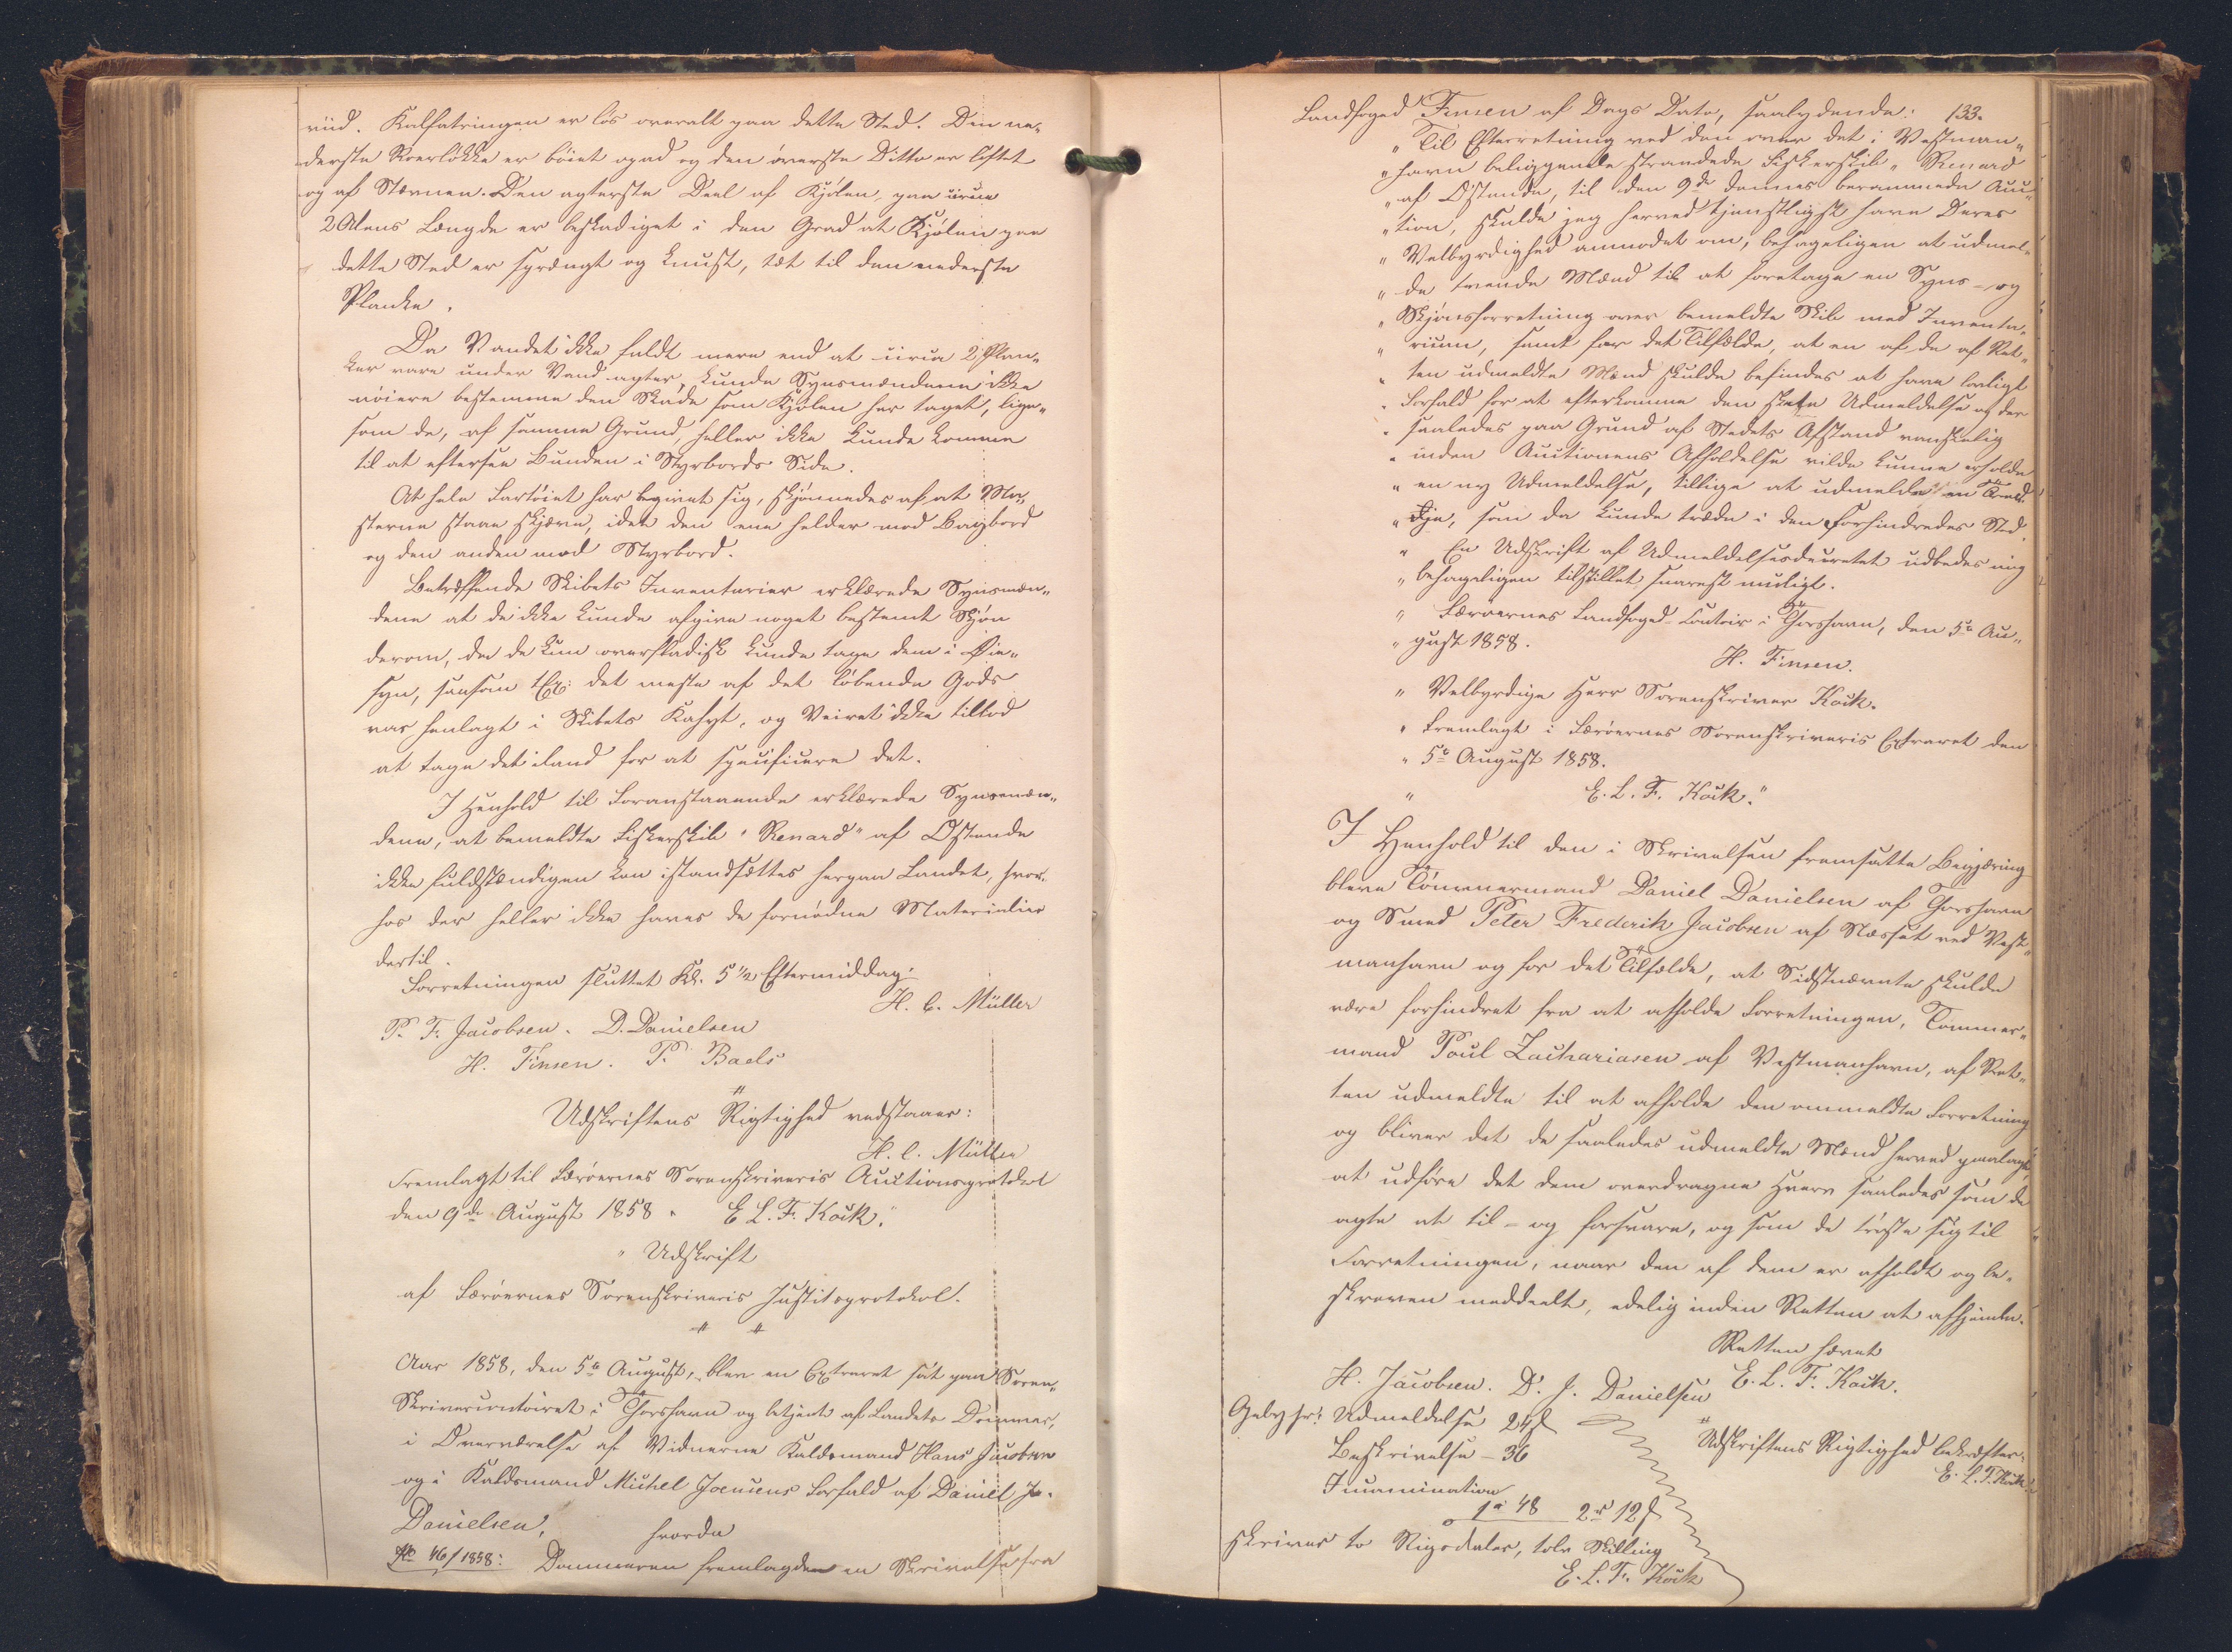 viid. Kalfatringen er løs overalt paa dette Sted. Den ne„
derste Roerløkke er böiet opad og den överste Ditto er löftet
og af Stævnen. Den agterste Deel af Kjölen, paa circa
2 Alens Længde er beskadiget i den Grad at Kjölen paa
dette Sted er sprængt og knust, tæt til den nederste
Planke.
Da Vandet ikke faldt mere end at circa 2 Plan„
ker vare under Vand agter, kunde Synsmændene ikke
nöiere bestemme den Skade som Kjölen har taget, lige„
som de, af samme Grund, heller ikke kunde komme
til at efterse Bunden i Styrbords Side.
At hele Fartöiet har begivet sig, skjönnedes af, at Ma„
sterne staae skjæve, idet den ene helder mod Bagbord
og den anden mod Styrbord.
Betræffende Skibets Inventarier erklærede Synsmæn„
dene at de ikke kunde afgive noget bestemt Skjön
derom, da de kun overfladisk kunde tage dem i Øie„
syn, saasom t Ex: det meste af det löbende Gods
var henlagt i Skibets Kahyt, og Veiret ikke tillod
at tage det iland for at specificere det.
I Henhold til Foranstaaende erklærede Synsmæn„
dene, at bemeldte Fiskerskib "Renard" af Ostende
ikke fuldstændigen kan istandsættes herpaa Landet, hvor„
hos der heller ikke haves de fornødne Materialier
dertil.
Forretningen sluttet Kl. 5 1/2 Eftermiddag.
H. C. Müller
P. F. Jacobsen. D. Danielsen
H. Finsen. P. Baels
Udskriftens Rigtighed vedstaaer:
H. C. Müller
Fremlagt til Færöernes Sorenskriveris Auctionsprotokol
den 9de August 1858. E. L. F. Kock."
" Udskrift
af Færöernes Sorenskriveris Justitsprotokol.
Aar 1858, den 5te August, blev en Extraret sat paa Soren„
skrivercontoiret i Thorshavn og betjent af Landets Dommer,
i Overværelse af Vidnerne Kaldsmand Hans Jacobsen
og i Kaldsmand Michel Joensens Forfald af Daniel Ja.
Danielsen,
hvorda
No 46/1858: Dommeren fremlagde en Skrivelse fra
Landfoged Finsen af Dags Dato, saalydende: 133.
" Til Efterretning ved den over det i Vestman„
" havn beliggende strandede Fiskerskib " Renard
" af Ostende, til den 9de dennes berammede Auc„
" tion, skulde jeg herved tjenstligst have Deres
" Velbyrdighed anmodet om, behageligen at udmel„
" de tvende Mænd til at foretage en Syns- og
" Skjönsforretning over bemeldte Skib med Inventa„
" rium, samt for det Tilfælde, at en af de af Ret„
" ten udmeldte Mænd skulde befindes at have lovligt
" Forfald for at efterkomme den skete Udmeldelse og der
" saaledes paa Grund af Stedets Afstand vanskelig
" inden Auctionens Afholdelse vilde kunne erholde
" en ny Udmeldelse, tillige at udmelde en Tred„
" die, som da kunde træde i den Forhindredes Sted.
" En Udskrift af Udmeldelsesdecretet udbedes mig
" behageligen tilstillet snarest muligt.
" Færöernes Landfoged-Contoir i Thorshavn, den 5te Au„
" gust 1858.
H. Finsen.
" Velbyrdige Herr Sorenskriver Kock.
" Fremlagt i Færöernes Sorenskriveris Extraret den
" 5te August 1858.
" E. L. F. Kock."
I Henhold til den i Skrivelsen fremsatte Begjæring
bleve Tömmermand Daniel Danielsen af Thorshavn
og Smed Peter Frederik Jacobsen af Næsset ved Vest„
manhavn og for det Tilfælde, at Sidstnævnte skulde
være forhindret fra at afholde Forretningen, Tömmer„
mand Poul Zachariasen af Vestmanhavn, af Ret„
ten udmeldte til at afholde den ommeldte Forretning
og bliver det de saaledes udmeldte Mænd herved paalagt,
at udföre det dem overdragne Hverv saaledes som de
agte at til- og forsvare, og som de tröste sig til
Forretningen, naar den af dem er afholdt og be„
skreven meddeelt, edelig inden Retten at afhjemle.
Retten hævet
E. L. F. Kock.
H. Jacobsen. D. J. Danielsen
Gebyhr: Udmeldelse 24 ß
Beskrivelse - 36
Udskriftens Rigtighed bekræfter:
E. L. F. Kock.
Incamination
1 rd 48 2 rd 12 ß
skriver to Rigsdaler, tolv Skilling
E. L. F. Kock